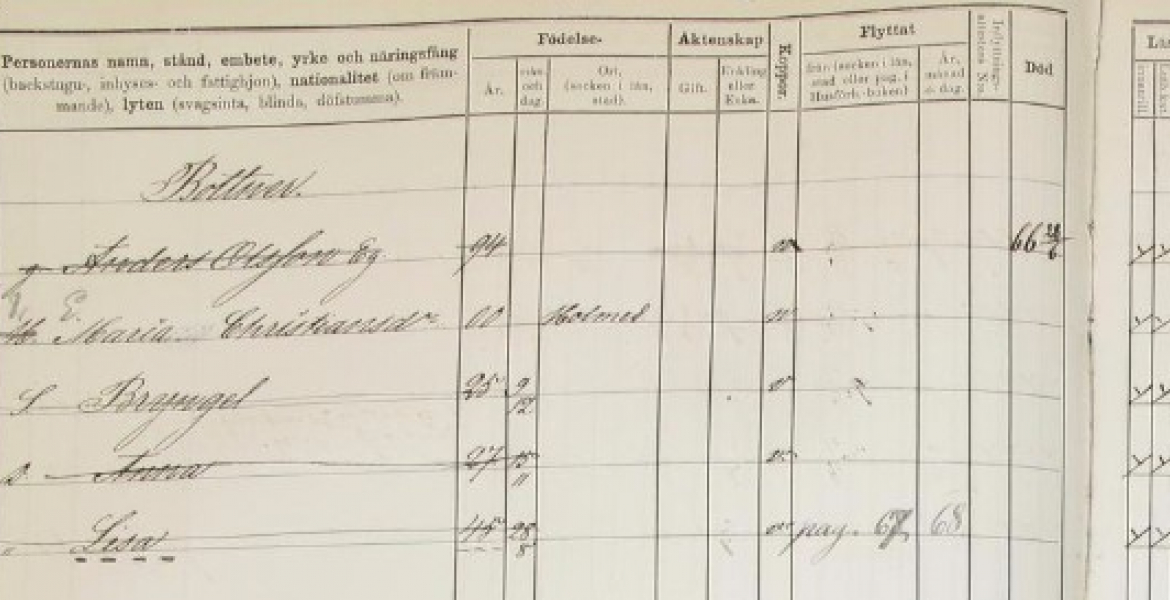 Personernas namn, stånd, embete, yrke och näringsfång
(backstugu-, inhyses- och fattighjon), nationalitet (om främ-
mande), lyten (svagsinta, blinda, döfstumma).
Födelse-
År.
och dag.
Ort, (socken i län, stad).
Äktenskap
Gift.
Enkling eller Enka.
Koppor.
Flyttat
från (socken i län, stad eller pag. i Husförh.-boken)
År, månad o. dag.
Inflyttnings-attestens N:o
Död
Boltner.
Anders Olsson Eg 94 v 66 28/6
E. Maria Christiansdr 00 Holmed v
S Bryngel 25 9/12 v
D. Anna 27 15/11 v
" Lisa 45 28/8 v pag. 67 68